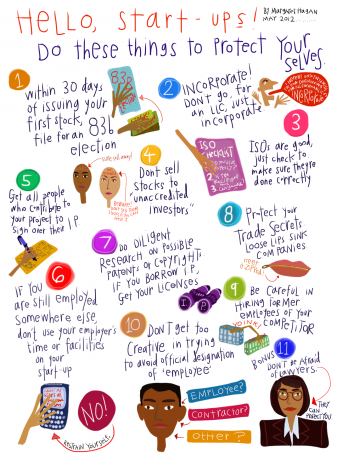 HELLO, START-UPS!
BY MARGARET HAGAN
MAY 2012
Do these things to Protect Your Selves.
1
within 30 days
of issuing your
first stock,
file for an 83b
election
83b
2
INCORPORATE!
DON'T go for
an LLC, just
incorporate
INCORPORATE
3
ISOs are good,
just check to
make sure they're
done correctly
ISO
CHECKLIST
4
Don't sell
stocks to
"unaccredited
investors"
5
Get all people
who contribute to
your project to
Sign over their IP
6
IF YOU
are still employed
somewhere else,
don't use your employer's
time or facilities
on your
start-up
NO!
RESTRAIN YOURSELF.
7
DO DILIGENT
Research on possible
Patents or Copyrights
IF YOU BORROW IP,
GET YOUR LICENSES
I P
8
Protect your
Trade Secrets
Loose Lips Sink
Companies
KEEP
it ZIPPED!
9
BE CAREFUL IN
HIRING FORMER
EMPLOYEES OF YOUR
COMPETITOR
10
DON'T GET TOO
Creative in trying
to avoid official designation
of 'employee'
EMPLOYEE?
CONTRACTOR?
Other?
BONUS 11
DON'T BE AFRAID
of LAWYERS.
THEY
CAN
PROTECT YOU